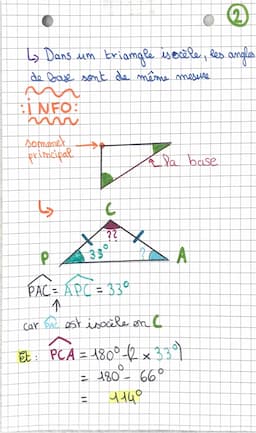 2
↳ Dans un triangle isocèle, les angles
de base sont de même mesure
:INFO:
sommet
principal
la base
C
??
P
33°
?
A
PAC = APC = 33°
car est isocèle en C
Et : PCA = 180° - (2 x 33°)
= 180° - 66°
= 114°